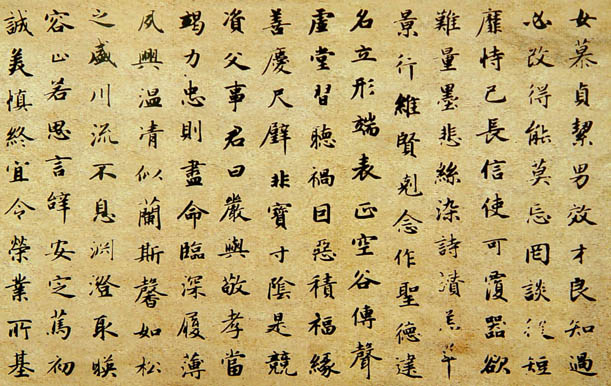 女慕貞絜男效才良知過
必改得能莫忘罔談彼短
靡恃己長信使可覆器欲
難量墨悲絲染詩讚羔羊
景行維賢剋念作聖德建
名立形端表正空谷傳聲
虛堂習聽禍因惡積福緣
善慶尺璧非寶寸陰是競
資父事君曰嚴與敬孝當
竭力忠則盡命臨深履薄
夙興温凊似蘭斯馨如松
之盛川流不息淵澄取暎
容止若思言辭安定篤初
誠美慎終宜令榮業所基